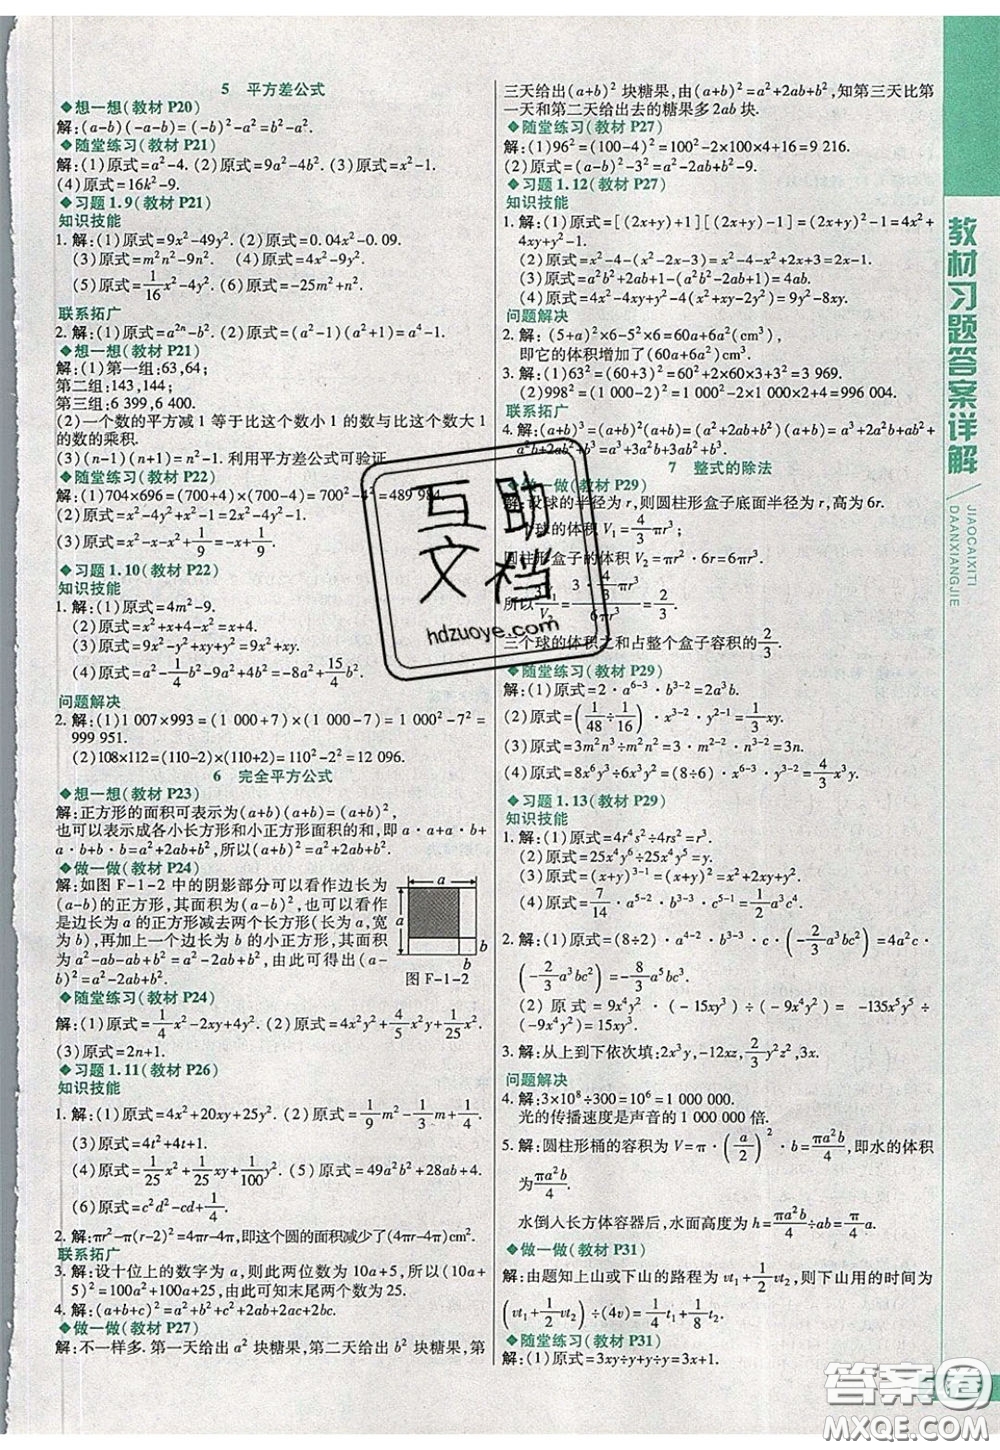 5 平方差公式
◆想一想(教材 P20)
解:(a-b)(-a-b)=(-b)²-a²=b²-a².
◆随堂练习(教材 P21)
解:(1)原式=a²-4. (2)原式=9a²-4b². (3)原式=x²-1.
(4)原式=16k²-9.
◆习题 1.9(教材 P21)
知识技能
1. 解:(1)原式=9x²-49y². (2)原式=0.04x²-0.09.
(3)原式=m²n²-9n². (4)原式=4x²-25y².
(5)原式=1/16x²-4y². (6)原式=-25m²+n².
联系拓广
2. 解:(1)原式=a²ⁿ-b². (2)原式=(a²-1)(a²+1)=a⁴-1.
◆想一想(教材 P21)
解:(1)第一组:63,64;
第二组:143,144;
第三组:6 399,6 400.
(2)一个数的平方减 1 等于比这个数小 1 的数与比这个数大 1
的数的乘积.
(3)(n-1)(n+1)=n²-1. 利用平方差公式可验证.
◆随堂练习(教材 P22)
解:(1)704×696=(700+4)(700-4)=700²-4²=489 984.
(2)原式=x²-4y²+x²-1=2x²-4y²-1.
(3)原式=x²-x-x²+1/9=-x+1/9.
◆习题 1.10(教材 P22)
知识技能
1. 解:(1)原式=4m²-9.
(2)原式=x²+x+4-x²=x+4.
(3)原式=9x²-y²-xy+y²=9x²-xy.
(4)原式=4a²-1/4b²-4a²+4b²=15/4b².
问题解决
2. 解:(1)1 007×993=(1 000+7)×(1 000-7)=1 000²-7²=
999 951.
(2)108×112=(110-2)×(110+2)=110²-2²=12 096.
6 完全平方公式
◆想一想(教材 P23)
解:正方形的面积可表示为(a+b)(a+b)=(a+b)²,
也可以表示成各小长方形和小正方形面积的和,即 a·a+a·b+
a·b+b·b=a²+2ab+b²,所以(a+b)²=a²+2ab+b².
◆做一做(教材 P24)
解:如图 F-1-2 中的阴影部分可以看作边长为
(a-b)的正方形,其面积为(a-b)²,也可以看作
是边长为 a 的正方形减去两个长方形(长为 a,宽
为 b),再加上一个边长为 b 的小正方形,其面积
为 a²-ab-ab+b²=a²-2ab+b²,所以可得出(a-
b)²=a²-2ab+b².
a
a
b
b
图 F-1-2
◆随堂练习(教材 P24)
解:(1)原式=1/4x²-2xy+4y². (2)原式=4x²y²+4/5x²y+1/25x².
(3)原式=2n+1.
◆习题 1.11(教材 P26)
知识技能
1. 解:(1)原式=4x²+20xy+25y². (2)原式=1/9m²-1/3m+1/4.
(3)原式=4t²+4t+1.
(4)原式=1/25x²+1/25xy+1/100y². (5)原式=49a²b²+28ab+4.
(6)原式=c²d²-cd+1/4.
2. 解:πr²-π(r-2)²=4πr-4π,即这个圆的面积减少了(4πr-4π)cm².
联系拓广
3. 解:设十位上的数字为 a,则此两位数为 10a+5,所以(10a+
5)²=100a²+100a+25,由此可知末尾两个数为 25.
4. 解:(a+b+c)²=a²+b²+c²+2ab+2ac+2bc.
◆做一做(教材 P27)
解:不一样多. 第一天给出 a² 块糖果,第二天给出 b² 块糖果,第
三天给出(a+b)² 块糖果,由(a+b)²=a²+2ab+b²,知第三天比第
一天和第二天给出去的糖果多 2ab 块.
◆随堂练习(教材 P27)
解:(1)96²=(100-4)²=100²-2×100×4+4²=9 216.
(2)原式=(a-b)²-3²=a²-2ab+b²-9.
◆习题 1.12(教材 P27)
知识技能
1. 解:(1)原式=[(2x+y)+1][(2x+y)-1]=(2x+y)²-1=4x²+
4xy+y²-1.
(2)原式=x²-4-(x²-2x-3)=x²-4-x²+2x+3=2x-1.
(3)原式=a²b²+2ab+1-(a²b²-2ab+1)=4ab.
(4)原式=4x²-4xy+y²-4(x²+xy-2y²)=9y²-8xy.
问题解决
2. 解:(5+a)²×6-5²×6=60a+6a²(cm³),
即它的体积增加了(60a+6a²)cm³.
3. 解:(1)63²=(60+3)²=60²+2×60×3+3²=3 969.
(2)998²=(1 000-2)²=1 000²-2×2×1 000+2²=996 004.
联系拓广
4. 解:(a+b)³=(a+b)²(a+b)=(a²+2ab+b²)(a+b)=a³+2a²b+
ab²+a²b+2ab²+b³=a³+3a²b+3ab²+b³.
7 整式的除法
◆做一做(教材 P29)
解:设球的半径为 r,则圆柱形盒子底面半径为 r,高为 6r.
一个球的体积 V₁=4/3πr³;
圆柱形盒子的体积 V₂=πr²·6r=6πr³.
所以3V₁/V₂=3·4/3πr³/6πr³=2/3.
三个球的体积之和占整个盒子容积的2/3.
◆随堂练习(教材 P29)
解:(1)原式=2·a⁶⁻³·b³⁻²=2a³b.
(2)原式=(1/48÷1/16)·x³⁻²·y²⁻¹=1/3xy.
(3)原式=3m²n³÷m²n²=3m²⁻²·n³⁻²=3n.
(4)原式=8x⁶y³÷6x³y²=8/6·x⁶⁻³·y³⁻²=4/3x³y.
◆习题 1.13(教材 P29)
知识技能
1. 解:(1)原式=4r⁴s²÷4rs²=r³.
(2)原式=25x⁴y⁶÷25x⁴y⁵=y.
(3)原式=(x+y)³⁻¹=(x+y)²=x²+2xy+y².
(4)原式=7/14·a⁵⁻³·b³⁻²·c⁵⁻¹=1/2a²bc⁴.
2. 解:(1)原式=(8÷2)·a⁴⁻²·b³⁻³·c·(-2/3a³bc²)=4a²c·
(-2/3a³bc²)=-8/3a⁵bc³.
(2)原式=9x⁴y²·(-15xy³)÷(-9x⁴y²)=-135x⁵y⁵÷
(-9x⁴y²)=15xy³.
3. 解:从上到下依次填:2x³y,-12xz,2/3y²z²,1/3xy.
问题解决
4. 解:3×10⁸÷300=10⁶=1 000 000.
光的传播速度是声音的 1 000 000 倍.
5. 解:圆柱形桶的容积为 V=π·(a/2)²·b=πa²b/4,即水的体积
为πa²b/4.
水倒入长方体容器后,水面高度为 h=πa²b/4÷ab=π/4a.
◆做一做(教材 P31)
解:由题知上山或下山的路程为 vt₁+1/2vt₂,则下山用的时间为
(vt₁+1/2vt₂)÷(4v)=1/4t₁+1/8t₂.
◆随堂练习(教材 P31)
解:(1)原式=3xy÷y+y÷y=3x+1.
教材习题答案详解
JIAOCAIXITI
DAANXIANGJIE
互助
文档
hdzuoye.com
答案卷
MXQE.COM